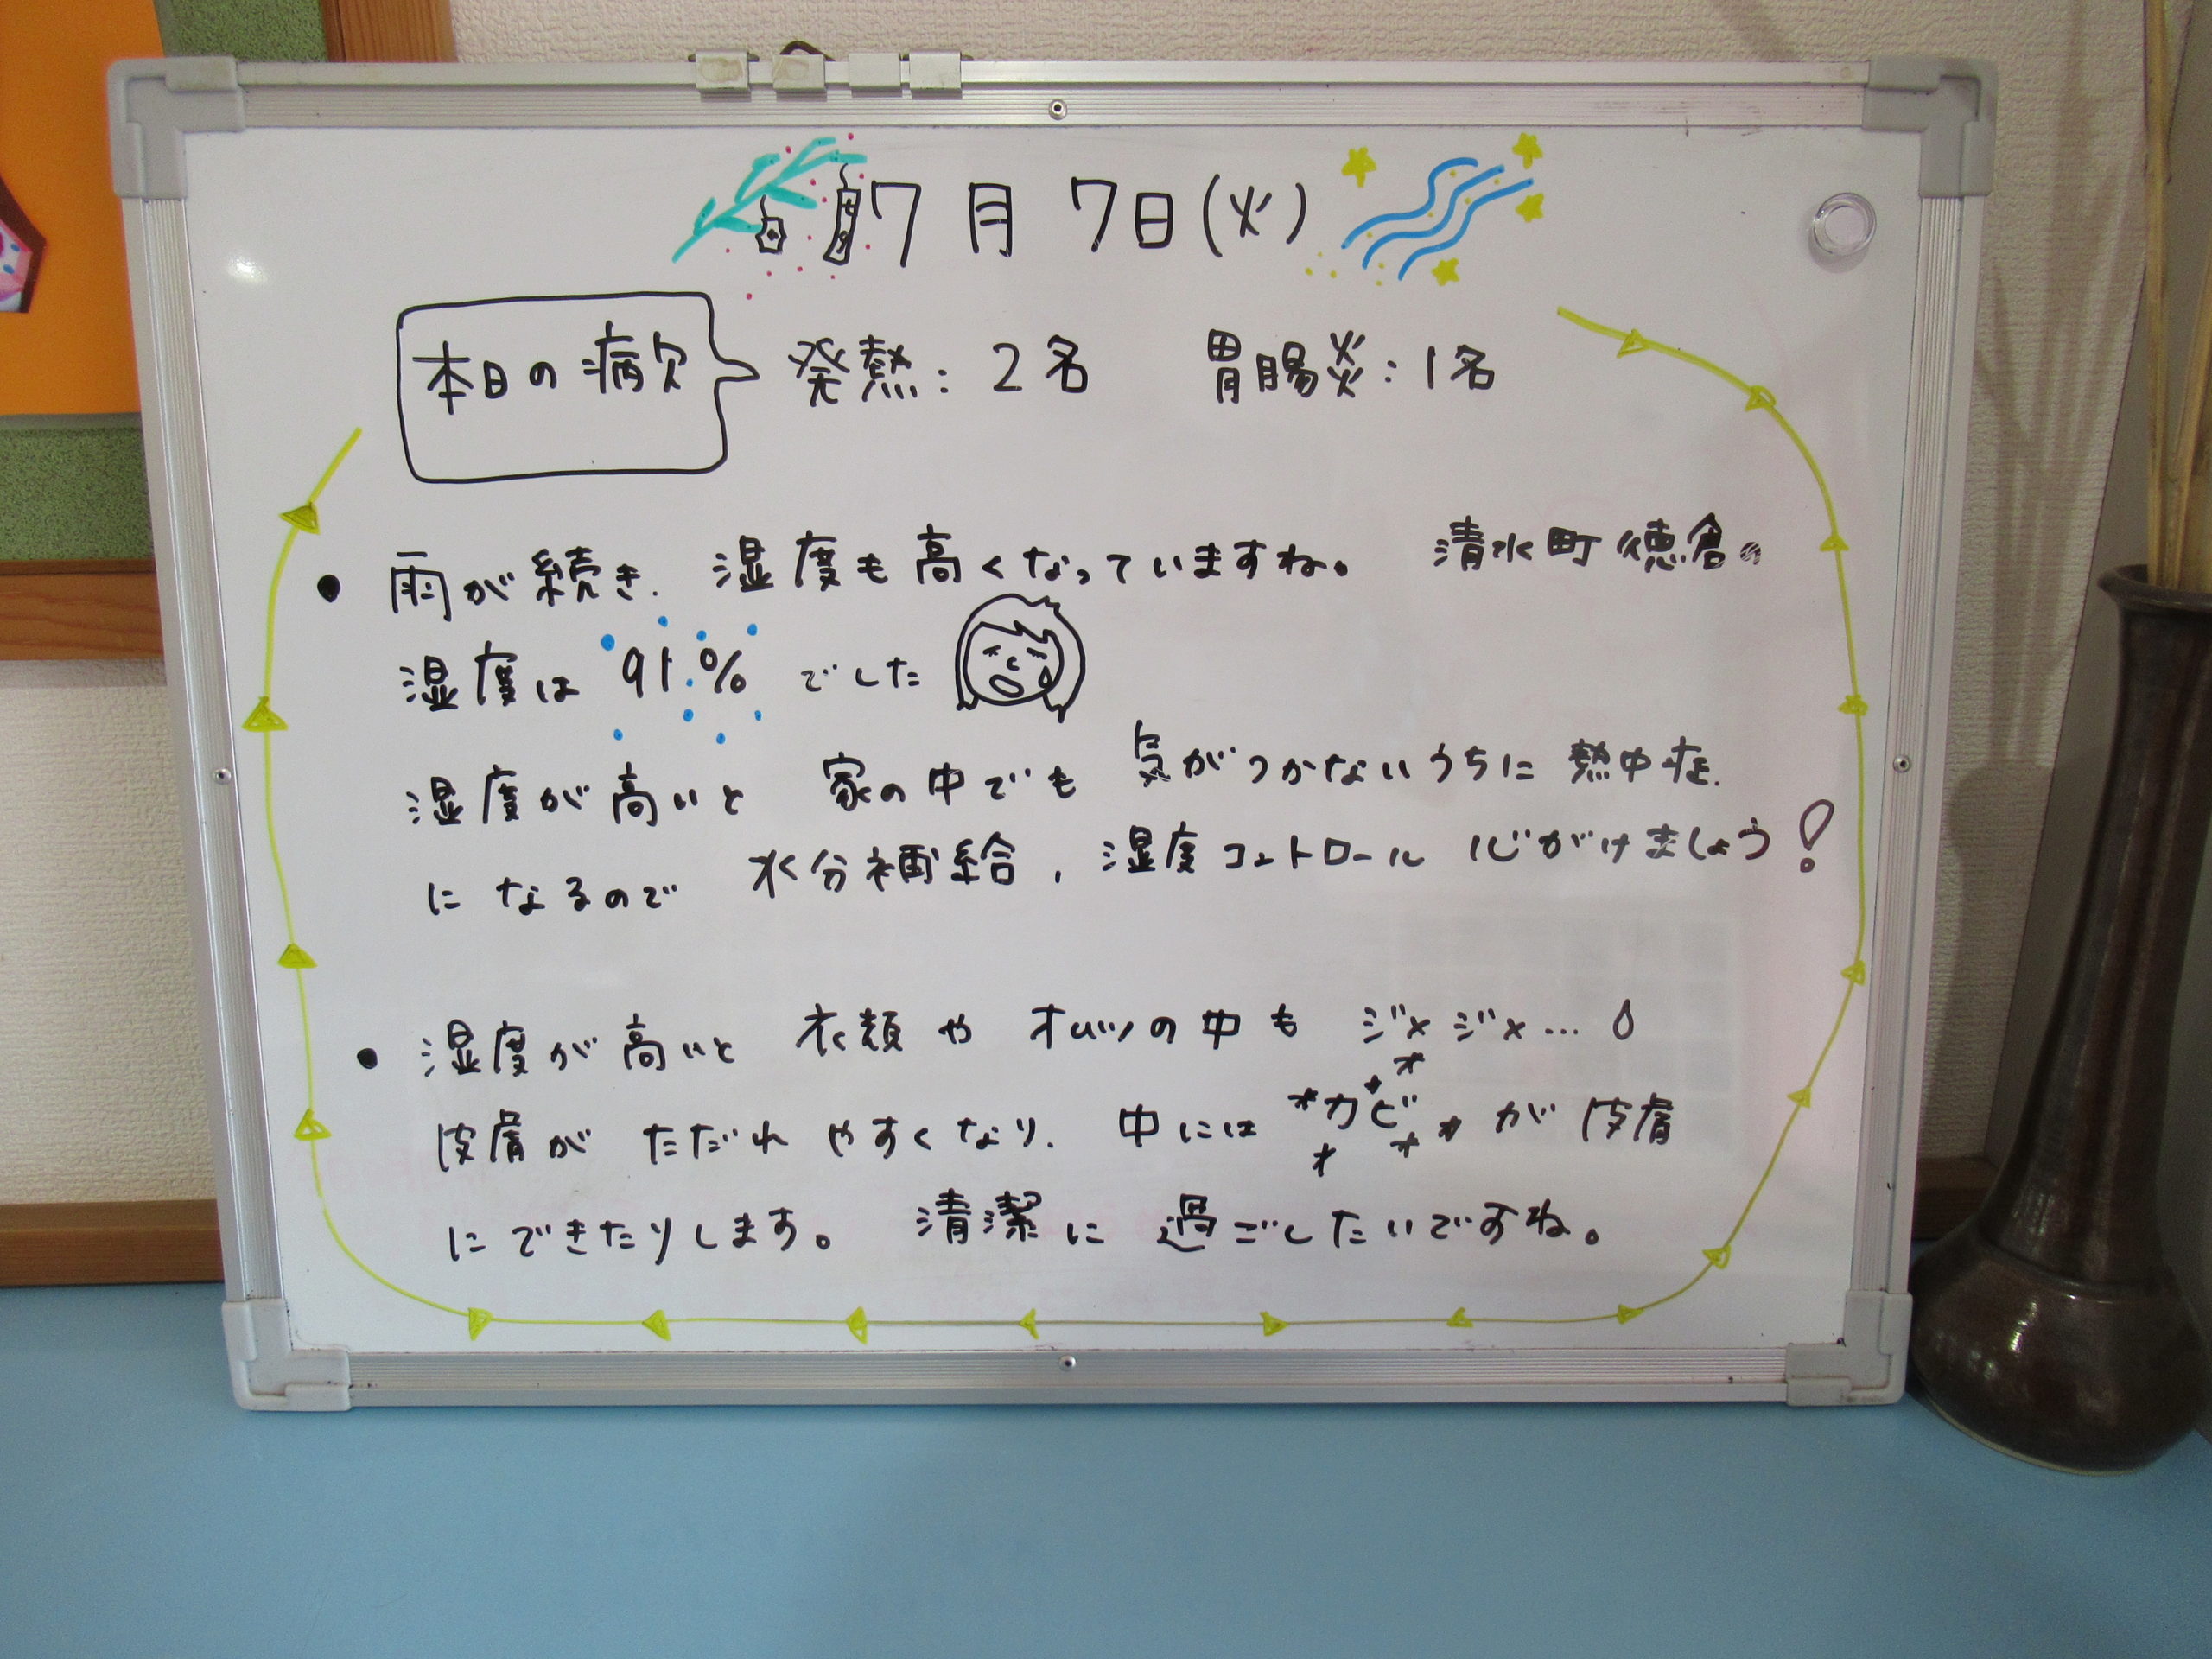 7月7日(火)
本日の病欠 発熱:2名 胃腸炎:1名
• 雨が続き、湿度も高くなっていますね。 清水町徳倉の
湿度は 91% でした
湿度が高いと 家の中でも 気がつかないうちに 熱中症
に なるので 水分補給、湿度コントロール 心がけましょう!
• 湿度が高いと 衣類や オムツの中も ジメジメ…
皮膚が ただれ やすくなり、 中には カビ が 皮膚
に できたりします。 清潔に 過ごしたいですね。